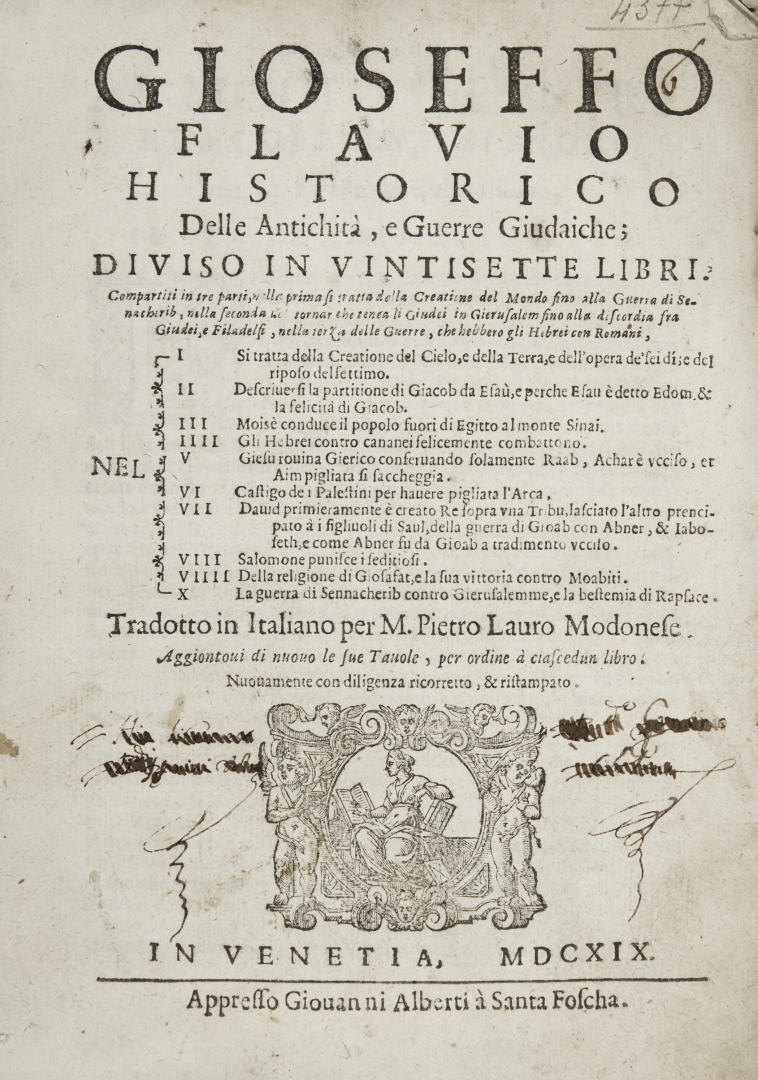 4377
GIOSEFFO
6
FLAVIO
HISTORICO
Delle Antichità, e Guerre Giudaiche;
DIVISO IN VINTISETTE LIBRI.
Compartiti in tre parti, nella prima si tratta della Creatione del Mondo fino alla Guerra di Se-
nacherib, nella seconda del tornar che fenea li Giudei in Gierusalem fino alla discordia fra
Giudei, e Filadelfi, nella terza delle Guerre, che hebbero gli Hebrei con Romani,
NEL
I Si tratta della Creatione del Cielo, e della Terra, e dell'opera de' sei dì; e del
riposo del settimo.
II Descriuesi la partitione di Giacob da Esaù, e perche Esau è detto Edom. &
la felicità di Giacob.
III Moisè conduce il popolo fuori di Egitto al monte Sinai.
IIII Gli Hebrei contro cananei felicemente combattono.
V Giesu rouina Gierico conseruando solamente Raab, Achar è vcciso, et
Aim pigliata si saccheggia.
VI Castigo de i Palestini per hauere pigliata l'Arca,
VII Dauid primieramente è creato Re sopra vna Tribu, lasciato l'altro prenci-
pato à i figliuoli di Saul, della guerra di Gioab con Abner, & Iabo-
seth, e come Abner fu da Gioab a tradimento vcciso.
VIII Salomone punisce i seditiosi.
VIIII Della religione di Giosafat, e la sua vittoria contro Moabiti.
X La guerra di Sennacherib contro Gierusalemme, e la bestemia di Rapsace.
Tradotto in Italiano per M. Pietro Lauro Modonese.
Aggiontoui di nuouo le sue Tauole, per ordine à ciascedun libro.
Nuouamente con diligenza ricorretto, & ristampato.
IN VENETIA, MDCXIX.
Appresso Giouanni Alberti à Santa Foscha.